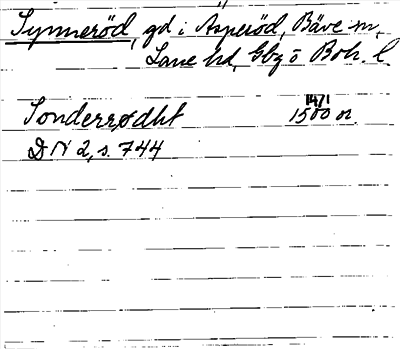 Synneröd, gd i Asperöd, Bäve sn,
Lane hd, Gbg o Boh. l.
1471
Sonderrødht 1500 n.
DN 2, s. 744